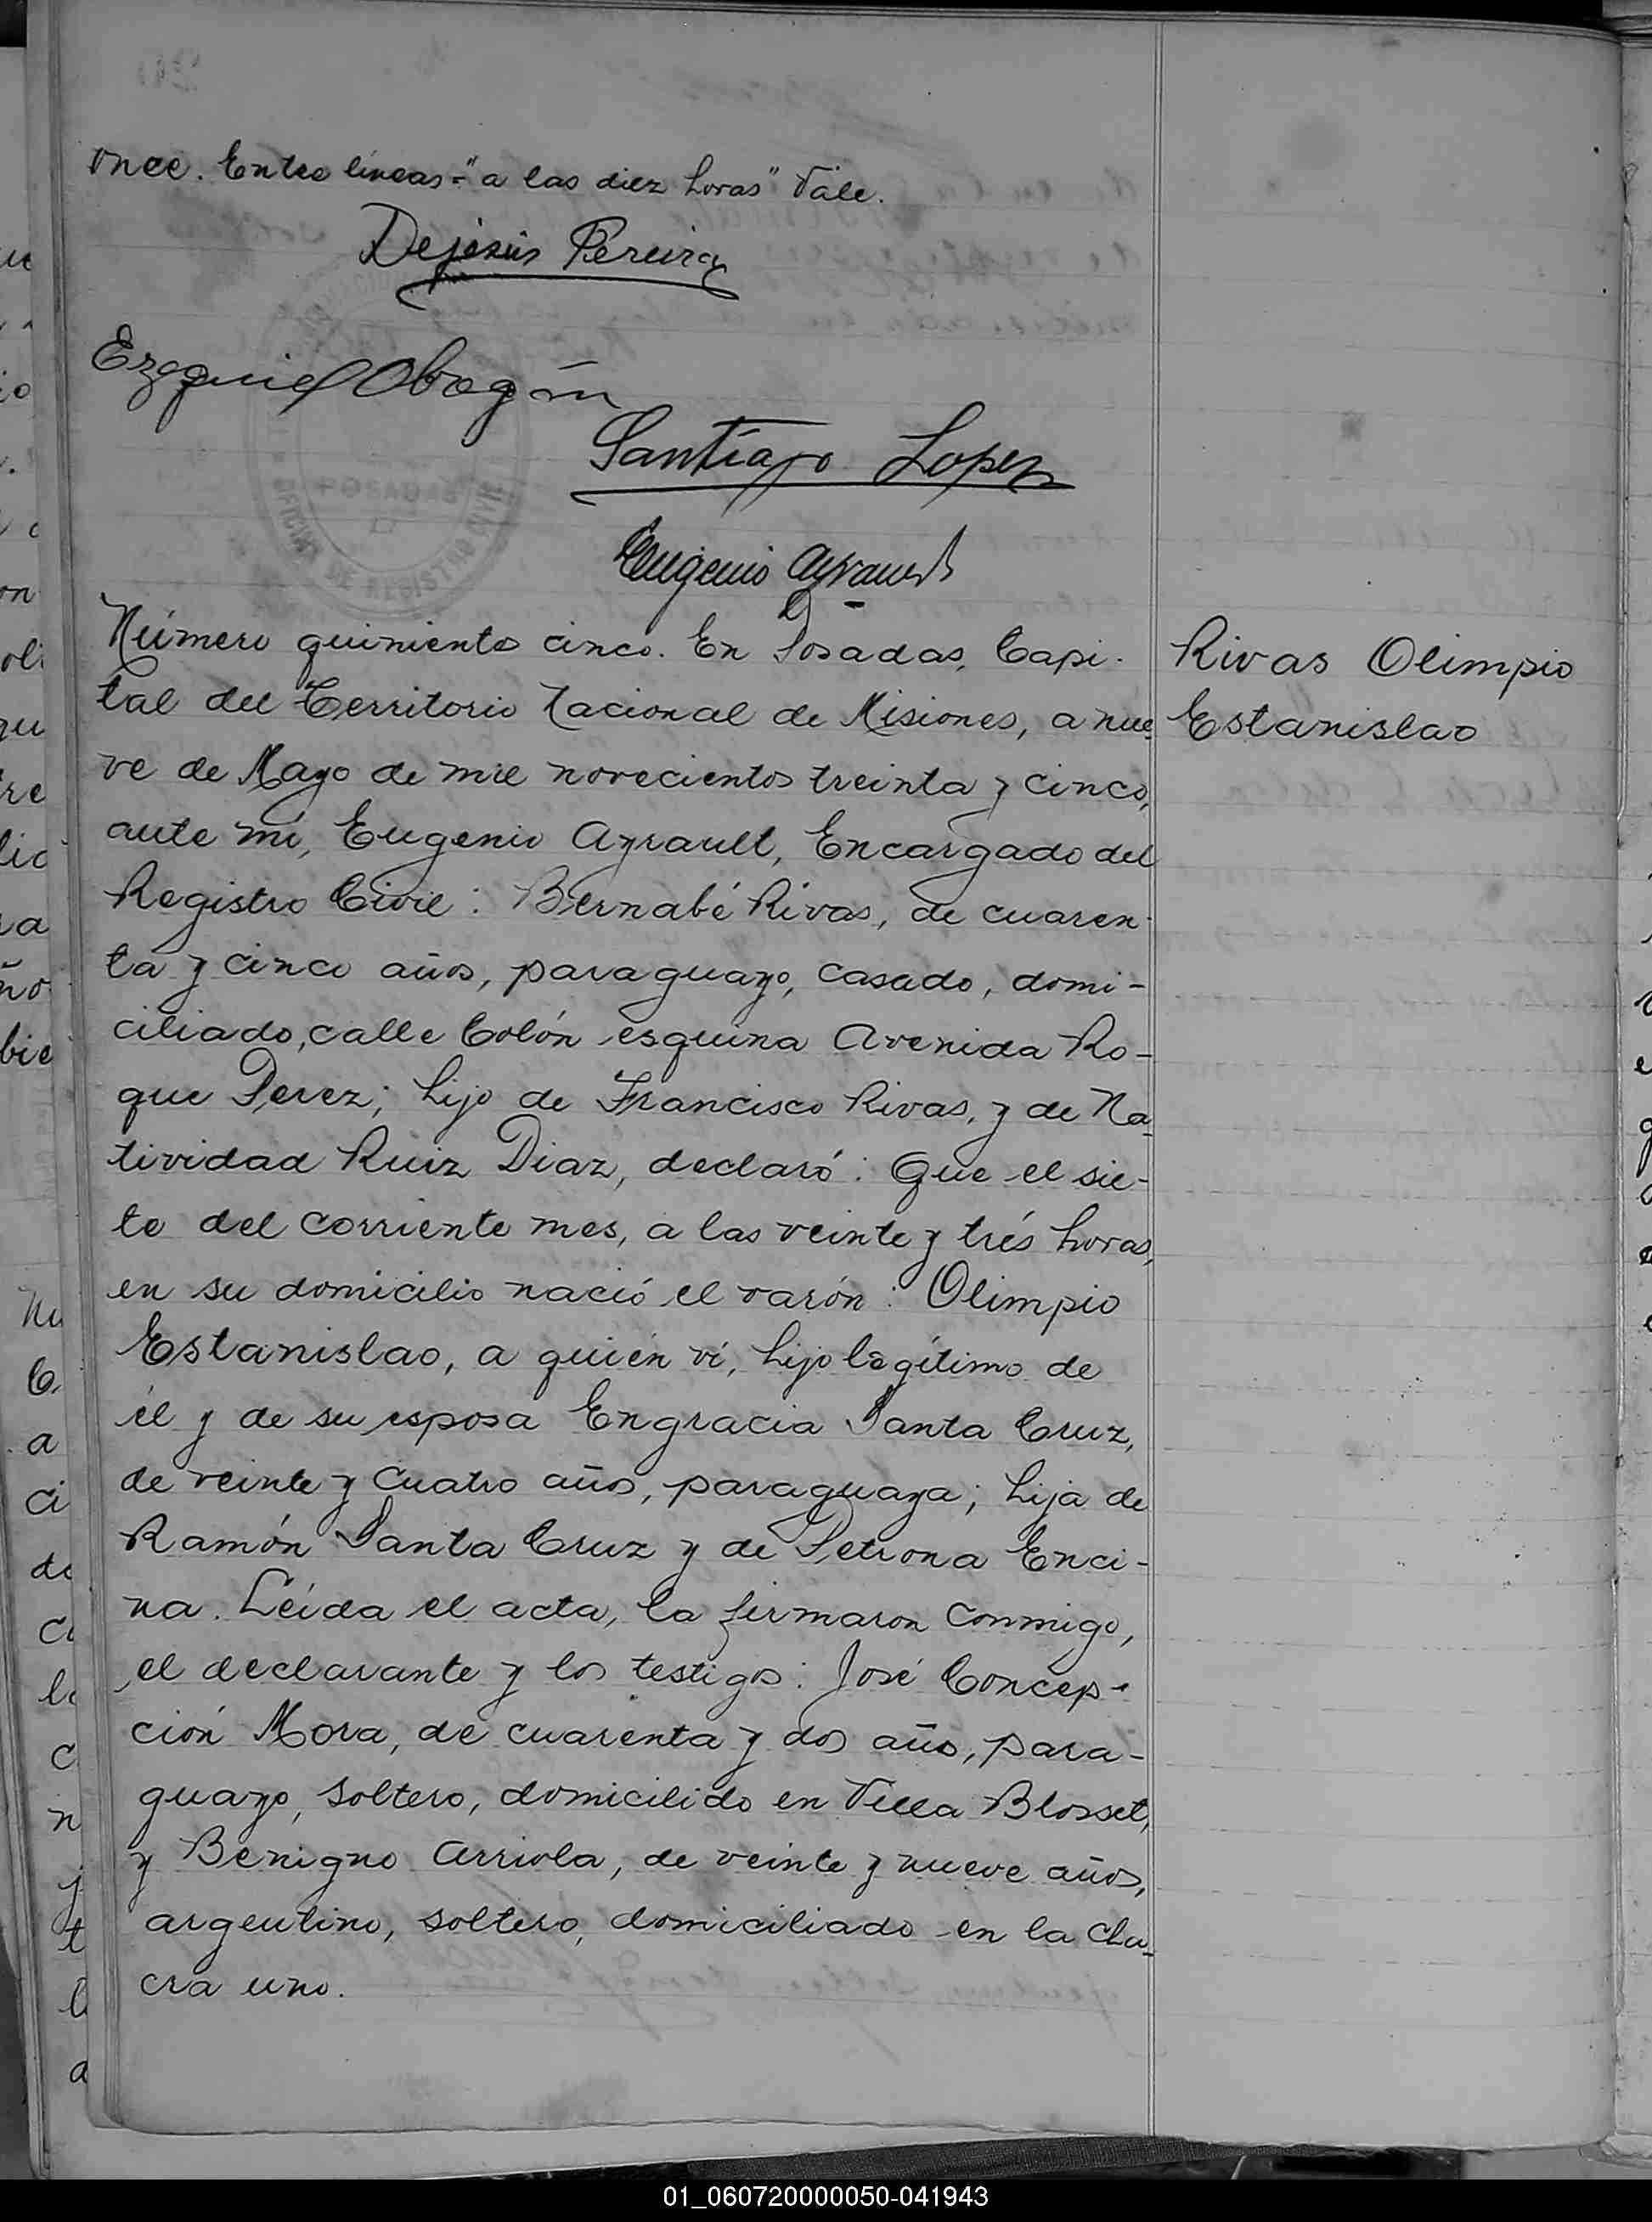 once. Entre líneas-"a las diez horas" Vale.
Dejesús Pereira
Ezequiel Obregón
Santiago Lopez
POSADAS
OFICINA DE REGISTRO CIVIL
Eugenio Ayrault
Número quinientos cinco. En Posadas, Capi-
tal del Territorio Nacional de Misiones, a nue-
ve de Mayo de mil novecientos treinta y cinco,
ante mí, Eugenio Ayrault, Encargado del
Registro Civil: Bernabé Rivas, de cuaren-
ta y cinco años, paraguayo, casado, domi-
ciliado, calle Colón esquina Avenida Ro-
que Perez; hijo de Francisco Rivas, y de Na-
tividad Ruiz Diaz, declaró: Que el sie-
te del corriente mes, a las veinte y trés horas,
en su domicilio nació el varón: Olimpio
Estanislao, a quién ví, hijo legítimo de
él y de su esposa Engracia Santa Cruz,
de veinte y cuatro años, paraguaya; hija de
Ramón Santa Cruz y de Petrona Enci-
na. Leída el acta, la firmaron conmigo,
el declarante y los testigos: José Concep-
ción Mora, de cuarenta y dos años, para-
guayo, soltero, domicilido en Villa Blosset,
y Benigno Arriola, de veinte y nueve años,
argentino, soltero, domiciliado en la cha-
cra uno.
Rivas Olimpio
Estanislao
01_060720000050-041943